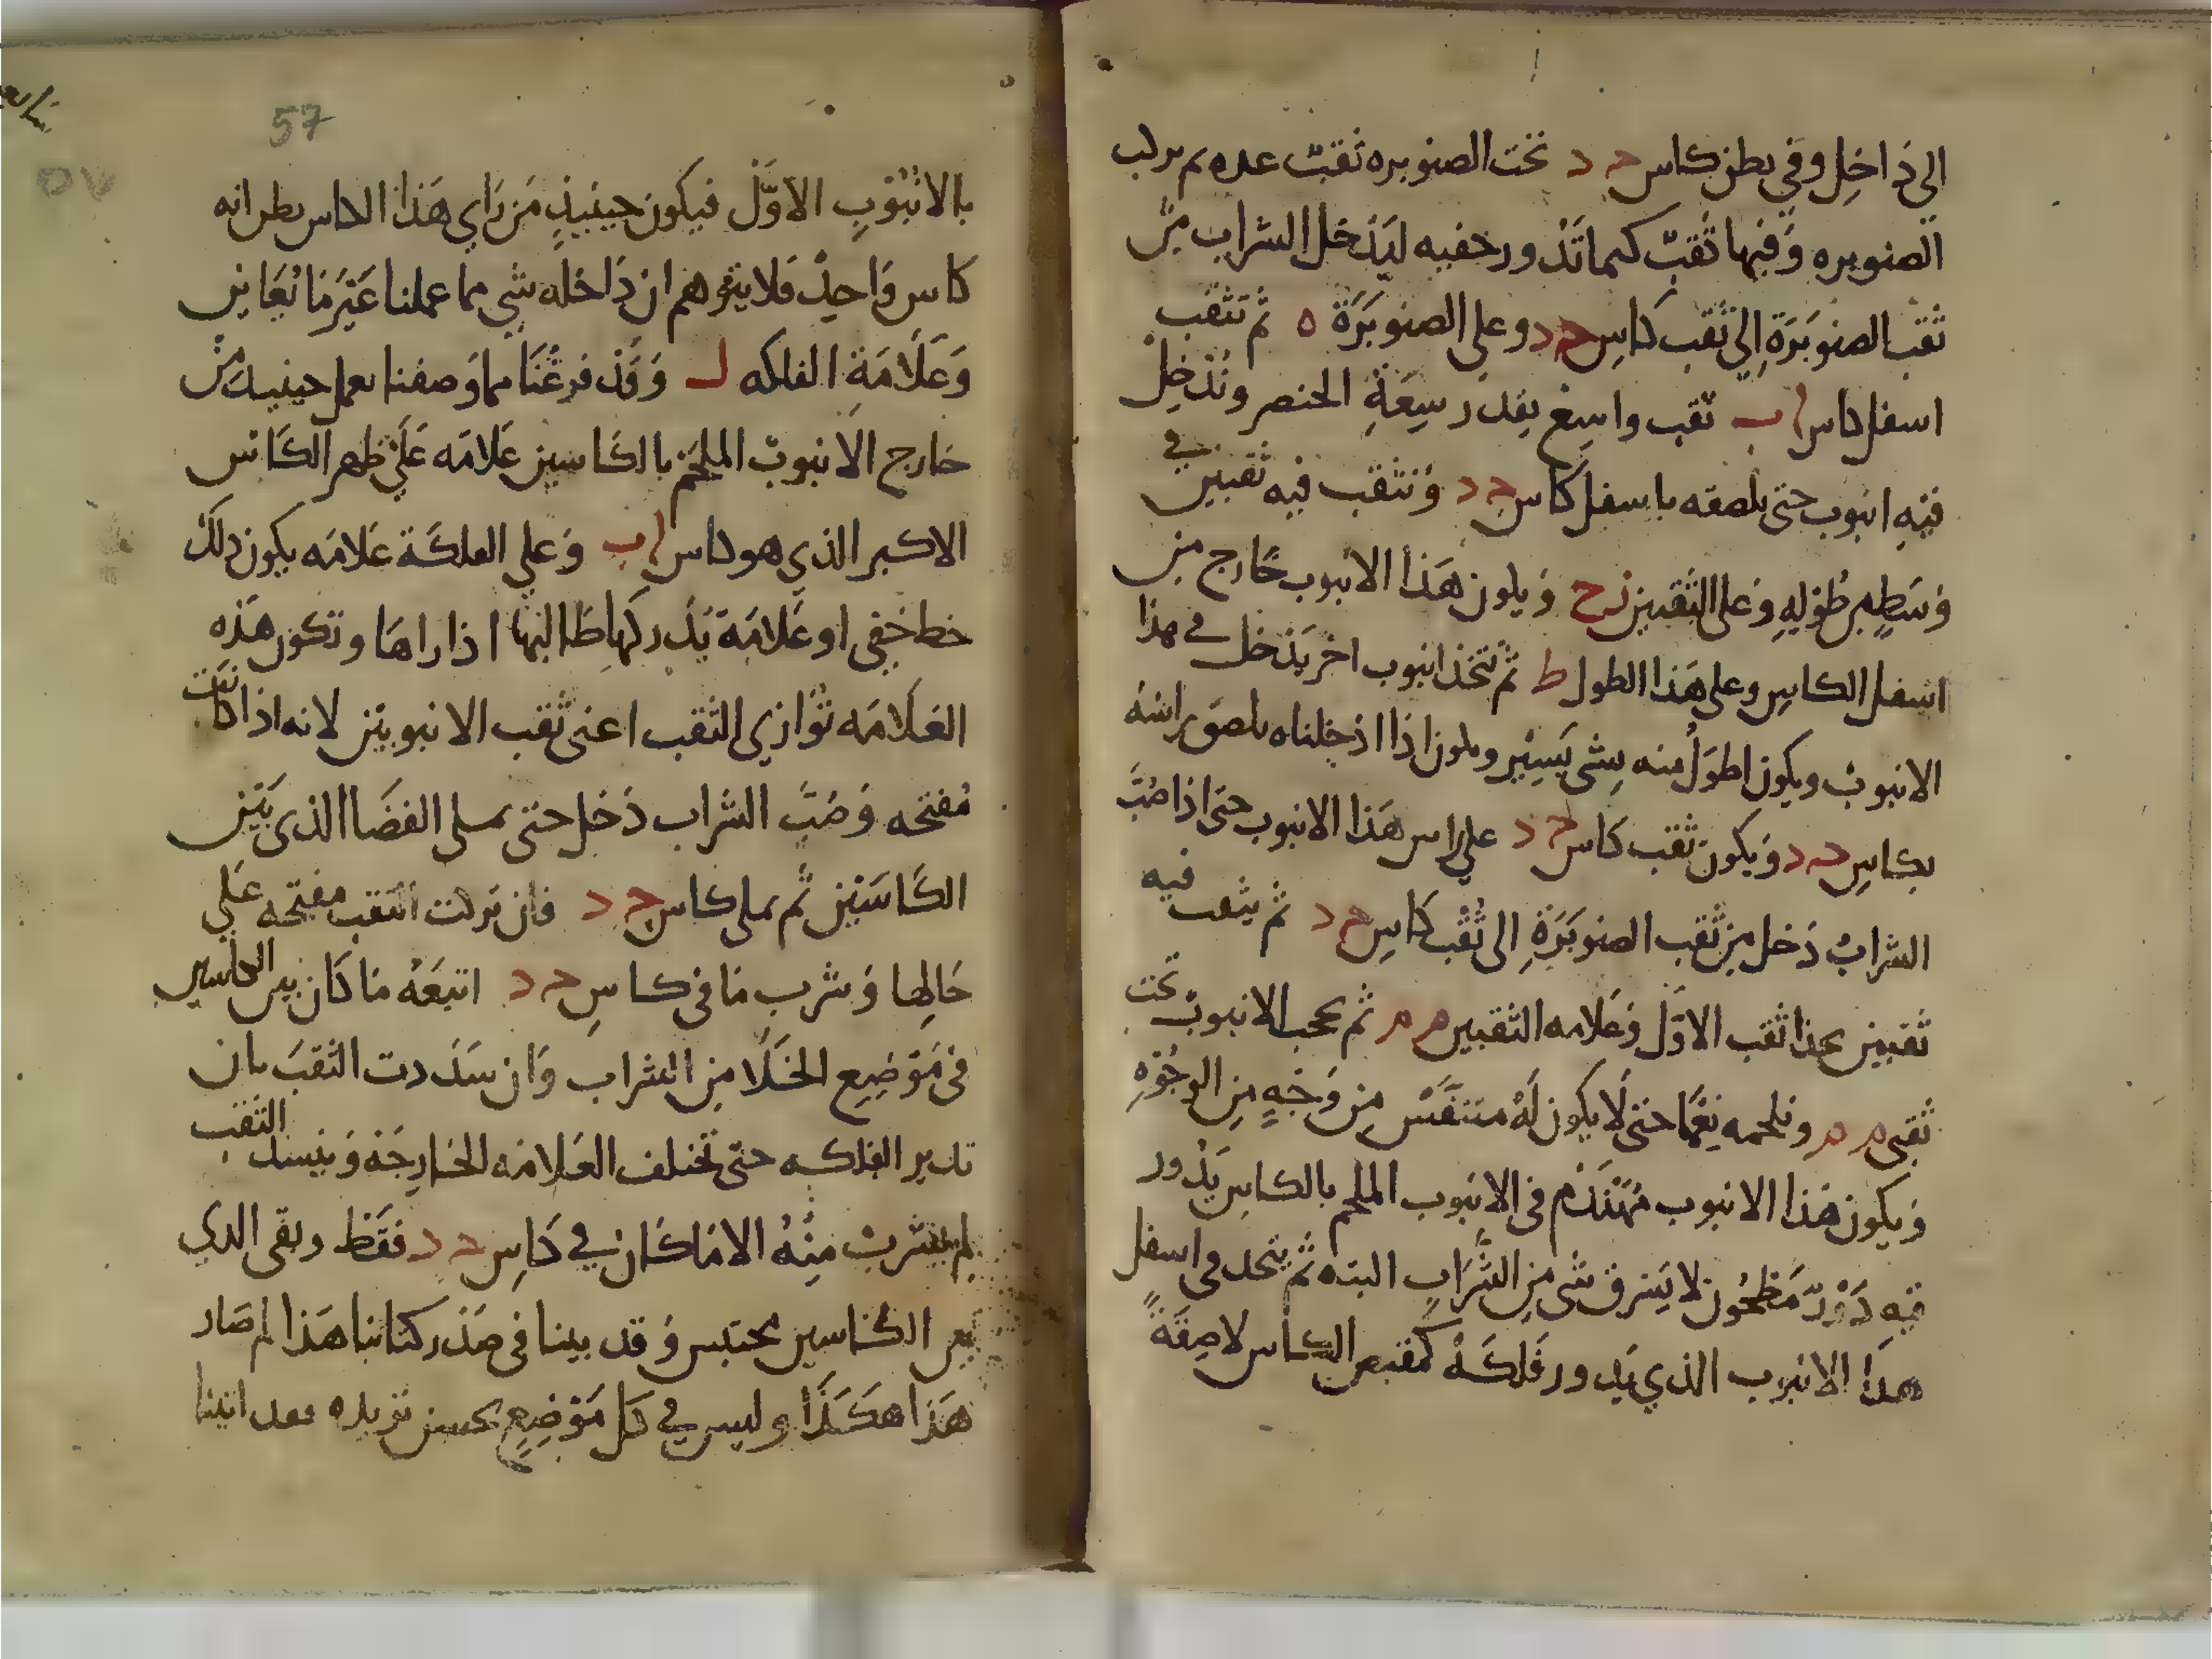 الى داخل وفي بطن كاس حـ د تحت الصنوبره ثقب عده ثم يركب
الصنوبره وفيها ثقب كيما تدور خفيه ليدخل الشراب من
ثقب الصنوبرة الى ثقب كاس حـ د وعلى الصنوبرة ه ثم تثقب
اسفل كاس ا ب ثقب واسع بقدر سعة الخنصر وندخل
فيه انبوب حتى نلصقه باسفل كاس حـ د ونثقب فيه ثقبين في
وسط من طوله وعلى الثقبين ز ح ويكون هذا الانبوب خارج من
اسفل الكاس وعلى هذا الطول ط ثم نتخذ انبوب اخر يدخل في هذا
الانبوب ويكون اطول منه بشي يسير ويكون اذا ادخلناه يلصق راسه
بكاس حـ د ويكون ثقب كاس حـ د على راس هذا الانبوب حتى اذا صب
الشراب دخل من ثقب الصنوبرة الى ثقب كاس حـ د ثم يثقب فيه
ثقبين بحذا ثقب الاول وعلامه الثقبين م م ثم نحجب الانبوب تحت
ثقبى م م ونلحمه نعما حتى لا يكون له متنفس من وجه من الوجوه
ويكون هذا الانبوب مهندم في الانبوب الملحم بالكاس يدور
فيه دور مطحون لا يسرق شي من الشراب البته ثم يتخذ في اسفل
هذا الانبوب الذي يدور فلكة كمقبض الكاس لاصقة
57
٥٧
بالانبوب الاول فيكون حينيذ من راي هذا الكاس يظن انه
كاس واحد فلا يتوهم ان داخله شي مما عملنا غير ما يعاين
وعلامة الفلكه ل وقد فرغنا مما وصفنا نعمل حينيذ من
خارج الانبوب الملحم بالكاسين علامه على ظهر الكاس
الاكبر الذي هو كاس ا ب وعلى الفلكة علامه يكون ذلك
خط خفي او علامة يدركها طالبها اذا راها وتكون هذه
العلامه توازي الثقب اعنى ثقب الانبوبين لانه اذا كانت
مفتحه وصب الشراب دخل حتى يملى الفضا الذى بين
الكاسين ثم يملى كاس حـ د فان تركت الثقب مفتحه على
حالها وشرب ما فى كاس حـ د اتبعه ما كان بين الكاسين
فى موضع الخلا من الشراب وان سددت الثقب بان
تدير الفلكه حتى تختلف العلامه الخارجة وينسد الثقب
لم يشرب منه الا ما كان في كاس حـ د فقط وبقى الذي
بين الكاسين محتبس وقد بينا فى صدر كتابنا هذا لم صار
هذا هكذا وليس في كل موضع يحسن تزيده فقد اتينا